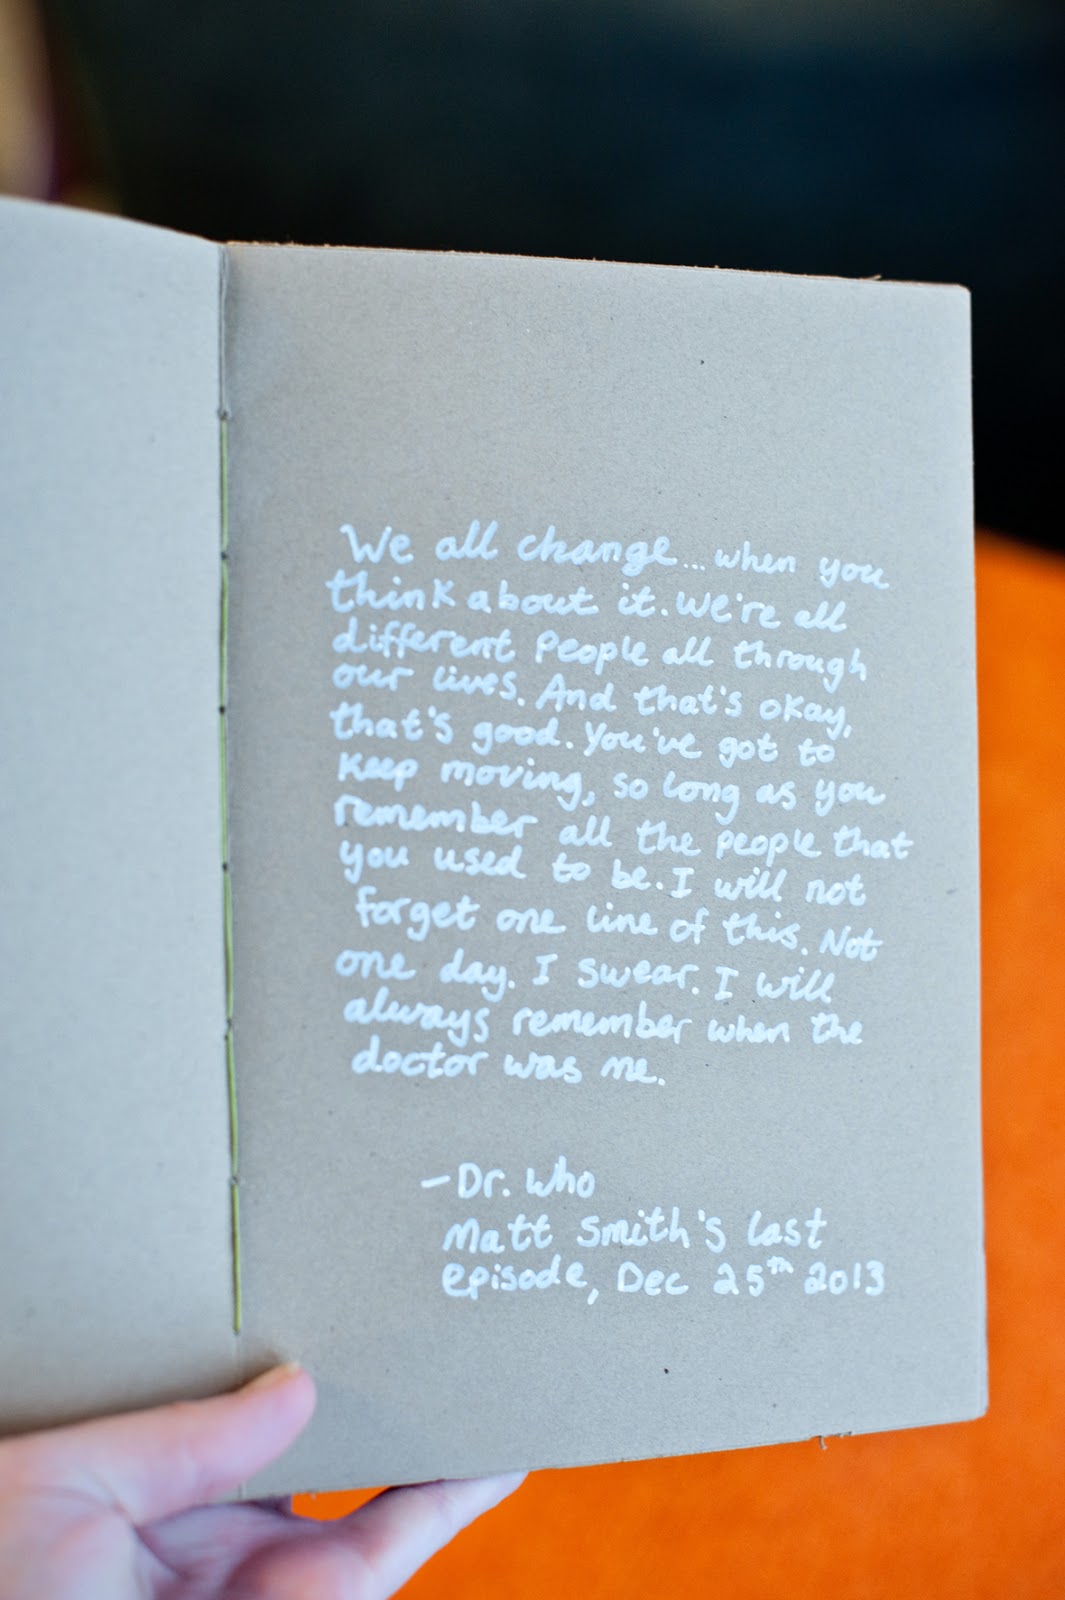 We all change... when you
think about it. We're all
different people all through
our lives. And that's okay,
that's good. You've got to
keep moving, so long as you
remember all the people that
you used to be. I will not
forget one line of this. Not
one day. I swear. I will
always remember when the
doctor was me.
—Dr. Who
Matt Smith's last
episode, Dec 25th 2013